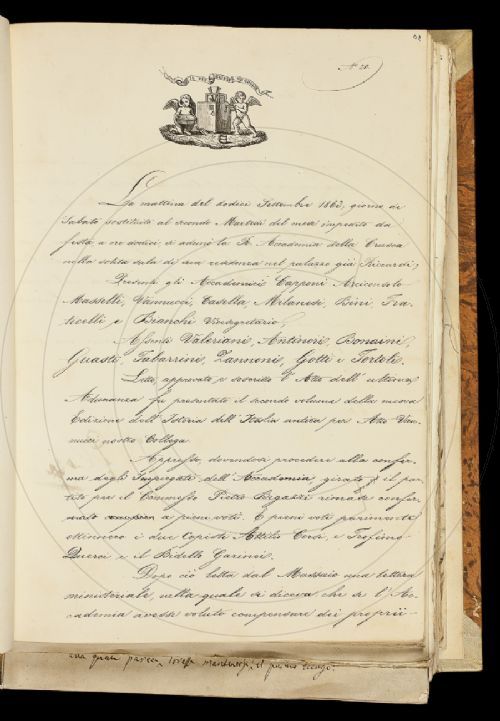 N° 20.
La mattina del dodici Settembre 1863, giorno di
Sabato sostituito al secondo Martedì del mese impedito da
festa, a ore dodici, si adunò la R. Accademia della Crusca
nella solita sala di sua residenza nel palazzo già Riccardi;
Presenti gli Accademici Capponi Arciconsolo
Masselli, Vannucci, Casella, Milanesi, Bini, Fra-
ticelli, e Bianchi Vicesegretario;
Assenti Valeriani, Antinori, Bonaini,
Guasti, Tabarrini, Zannoni, Gotti e Tortoli.
Letto, approvato e soscritto l'Atto dell'ultima
Adunanza fu presentato il secondo volume della nuova
Edizione dell'Istoria dell'Italia antica per Atto Van-
nucci nostro Collega.
Appresso, dovendosi procedere alla confer-
ma degli Impiegati dell'Accademia, girato il par-
tito per il Commesso Pietro Bigazzi rimase confer-
mato a pieni voti. E pieni voti parimente
ottennero i due Copisti Attilio Corsi, e Trofimo
Querci e il Bidello Garinei.
Dopo ciò letta dal Massaio una lettera
ministeriale, nella quale si diceva che se l'Ac-
cademia avesse voluto compensare dei proprii